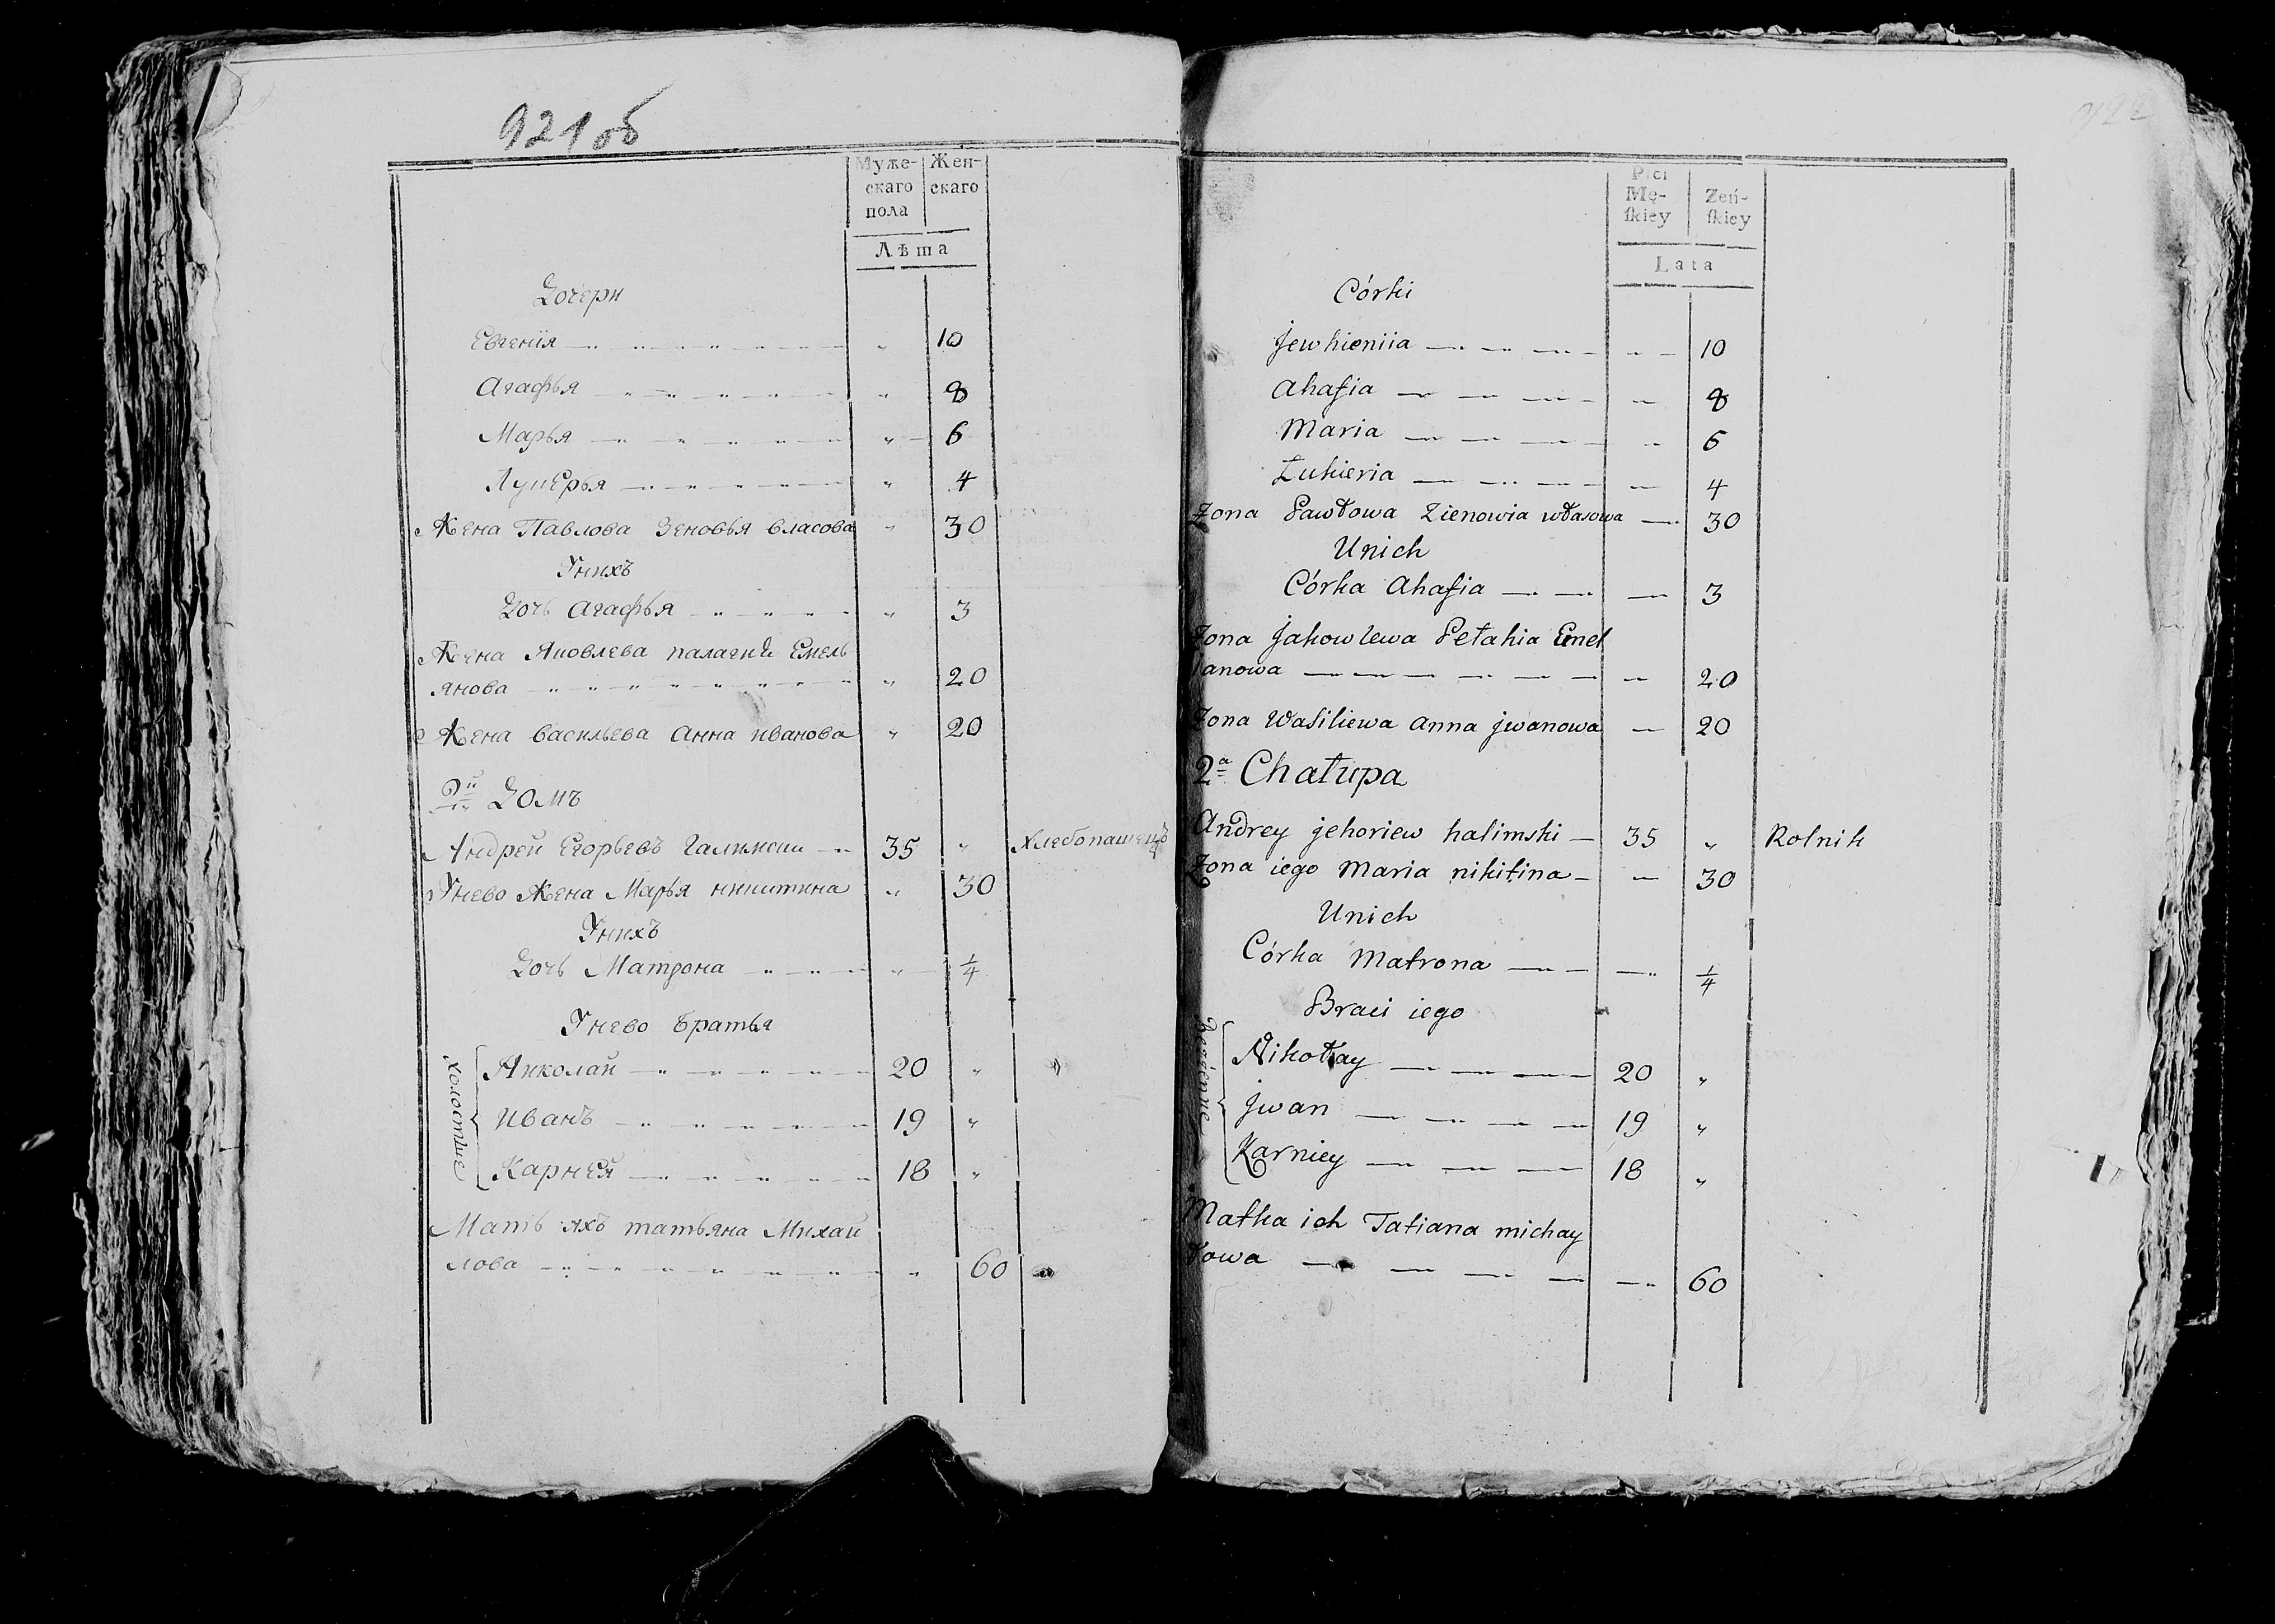 921об
Муже-
скаго
пола
Жен-
скаго
Лѣта
Дочери
Евгенiя 10
Агафья 8
Марья 6
Лукерья 4
Жена Павлова Зеновья власова 30
Унихъ
Дочь Агафья 3
Жена Яковлева палагия Емель
янова 20
Жена васильева Анна иванова 20
2й Домъ
Андрей Егорьевъ Галимски 35 Хлебопашецъ
Унево Жена Марья никитина 30
Унихъ
Дочь Матрона 1/4
Унево Братья
холостые
Николай 20
Иванъ 19
Карней 18
Мать ихъ татьяна Михай
лова 60
922
Płci
Mę-
ſkiey
Żeń-
ſkiey
Lata
Córki
Jewhieniia 10
Ahafia 8
Maria 6
Łukieria 4
Żona Pawłowa Zienowia własowa 30
Unich
Córka Ahafia 3
Żona Jakowlewa Pełahia Emel
ianowa 20
Żona Wasiliewa Anna jwanowa 20
2a Chałupa
Andrey jehoriew halimski 35 Rolnik
Żona iego Maria nikitina 30
Unich
Córka Matrona 1/4
Braci iego
Nikołay 20
Jwan 19
Karniey 18
Matka ich Tatiana michay
łowa 60